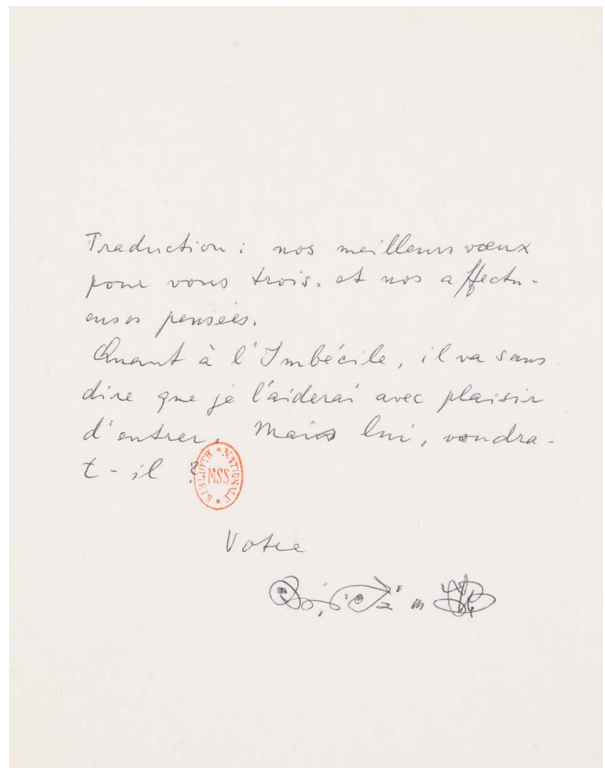 Traduction : nos meilleurs vœux
pour vous trois. et nos affectu-
euses pensées.
Quant à l'Imbécile, il va sans
dire que je l'aiderai avec plaisir
d'entrer. Mais lui, voudra-
t-il ?
BIBLIOTH * NATIONALE *
MSS
Votre